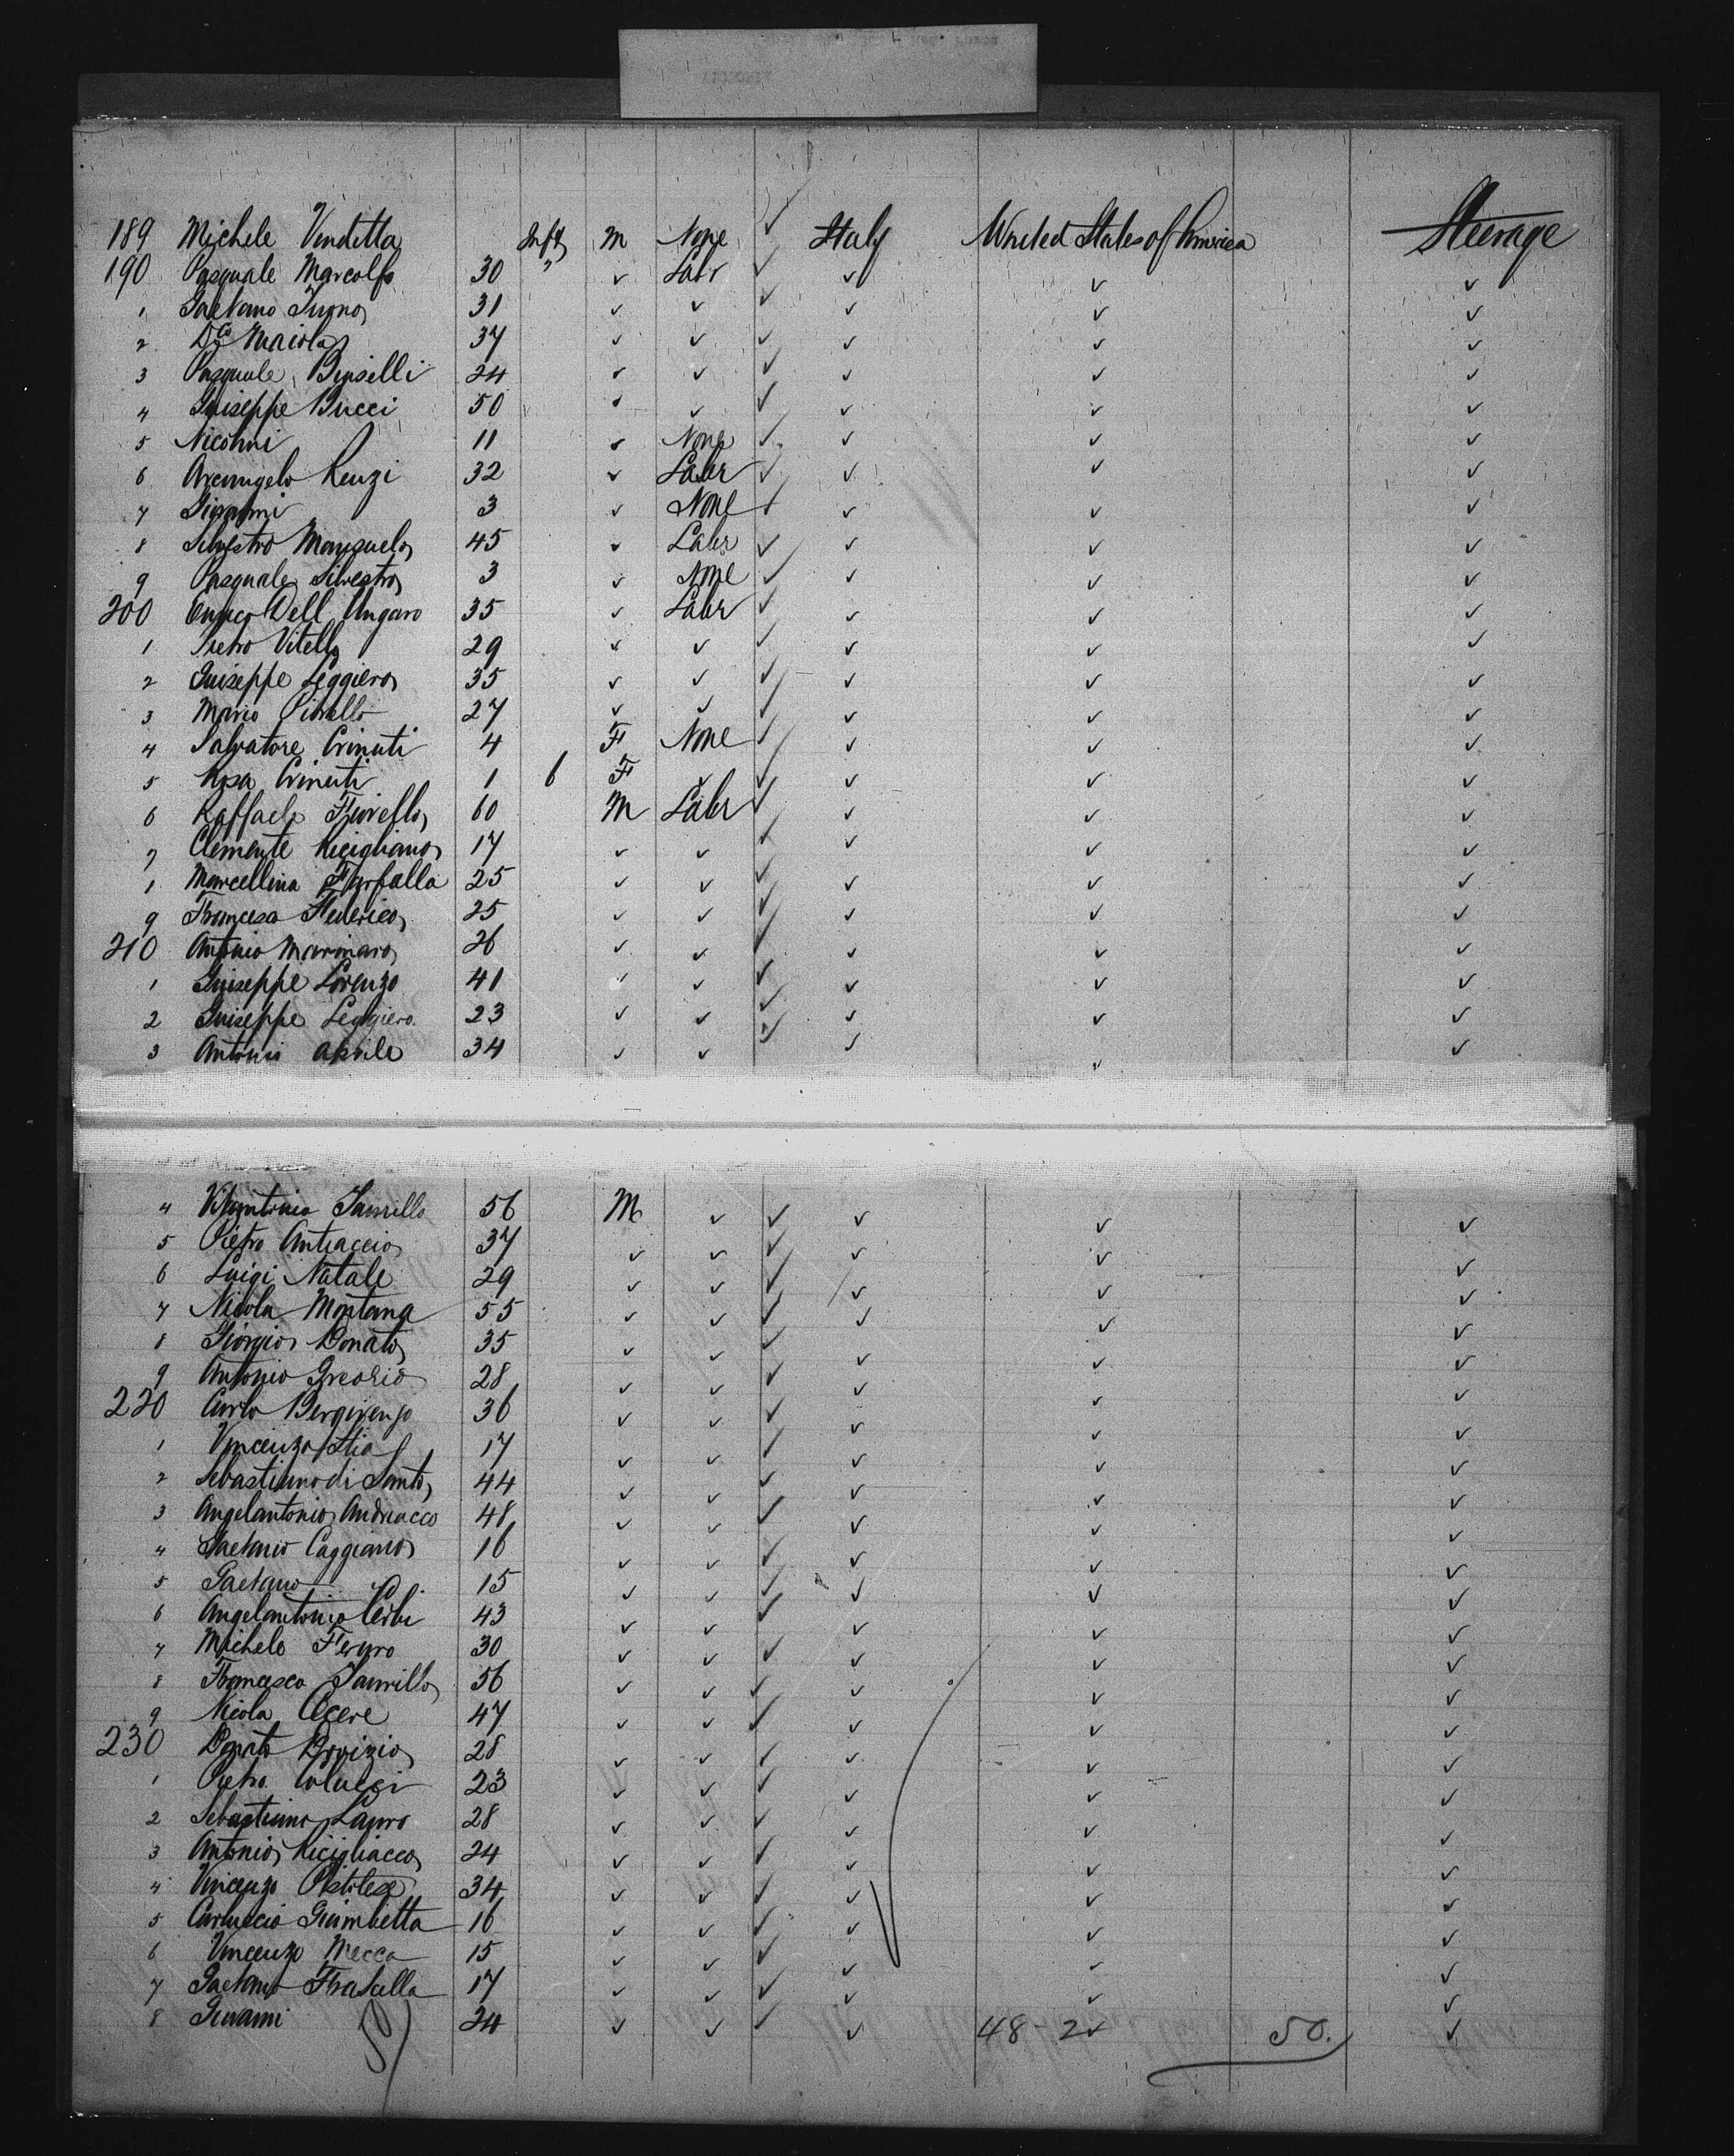 189 Michele Vendetta Inft m None ✓ Italy United States of America Steerage
190 Pasquale Marcolfo 30 " ✓ Labr ✓ ✓ ✓ ✓
1 Gaetano 31 ✓ ✓ ✓ ✓ ✓ ✓
2 Dco Maiola 37 ✓ ✓ ✓ ✓ ✓ ✓
3 Pasquale 24 ✓ ✓ ✓ ✓ ✓ ✓
4 Guiseppe Bucci 50 ✓ ✓ ✓ ✓ ✓ ✓
5 11 ✓ None ✓ ✓ ✓ ✓
6 Arcangelo Renzi 32 ✓ Labr ✓ ✓ ✓ ✓
7 Giovanni 3 ✓ None ✓ ✓ ✓ ✓
8 Silvestro Mansuelo 45 ✓ Labr ✓ ✓ ✓ ✓
9 Pasquale Silvestro 3 ✓ None ✓ ✓ ✓ ✓
200 Dell Ungaro 35 ✓ Labr ✓ ✓ ✓ ✓
1 Pietro Vitello 29 ✓ ✓ ✓ ✓ ✓ ✓
2 Guiseppe Leggiero 35 ✓ ✓ ✓ ✓ ✓ ✓
3 Mario 27 ✓ ✓ ✓ ✓ ✓ ✓
4 Salvatore Crinuti 4 F None ✓ ✓ ✓ ✓
5 Rosa Crinuti 1 6 F ✓ ✓ ✓ ✓ ✓
6 Raffaele Fiorello 60 M Labr ✓ ✓ ✓ ✓
7 Clemente Ricigliano 17 ✓ ✓ ✓ ✓ ✓ ✓
1 Marcellina Farfalla 25 ✓ ✓ ✓ ✓ ✓ ✓
9 Francesa Federico 25 ✓ ✓ ✓ ✓ ✓ ✓
210 Antonio Marinaro 26 ✓ ✓ ✓ ✓ ✓ ✓
1 Guiseppe Lorenzo 41 ✓ ✓ ✓ ✓ ✓ ✓
2 Guiseppe Leggiero 23 ✓ ✓ ✓ ✓ ✓ ✓
3 Antonio Aprile 34 ✓ ✓ ✓ ✓ ✓ ✓
4 Vitantonio Iamillo 56 M ✓ ✓ ✓ ✓ ✓
5 Pietro Antiaccio 37 ✓ ✓ ✓ ✓ ✓ ✓
6 Luigi Natale 29 ✓ ✓ ✓ ✓ ✓ ✓
7 Nicola Montana 55 ✓ ✓ ✓ ✓ ✓ ✓
8 Giorgio Donato 35 ✓ ✓ ✓ ✓ ✓ ✓
9 Antonio Greorio 28 ✓ ✓ ✓ ✓ ✓ ✓
220 Carlo 36 ✓ ✓ ✓ ✓ ✓ ✓
1 Vincenzo 17 ✓ ✓ ✓ ✓ ✓ ✓
2 Sebastiano di Santo 44 ✓ ✓ ✓ ✓ ✓ ✓
3 Angelantonio Andriacco 48 ✓ ✓ ✓ ✓ ✓ ✓
4 Gaetano Caggiano 16 ✓ ✓ ✓ ✓ ✓ ✓
5 Gaetano 15 ✓ ✓ ✓ ✓ ✓ ✓
6 Angelantonio Cerbi 43 ✓ ✓ ✓ ✓ ✓ ✓
7 Michele Ferraro 30 ✓ ✓ ✓ ✓ ✓ ✓
8 Francesco Iamillo 56 ✓ ✓ ✓ ✓ ✓ ✓
9 Nicola Cicere 47 ✓ ✓ ✓ ✓ ✓ ✓
230 Donato 28 ✓ ✓ ✓ ✓ ✓ ✓
1 Pietro Colucci 23 ✓ ✓ ✓ ✓ ✓ ✓
2 Sebastiano Lauro 28 ✓ ✓ ✓ ✓ ✓ ✓
3 Antonio Ricigliacco 24 ✓ ✓ ✓ ✓ ✓ ✓
4 Vincenzo Pistilese 34 ✓ ✓ ✓ ✓ ✓ ✓
5 Carluccio Giambetta 16 ✓ ✓ ✓ ✓ ✓ ✓
6 Vincenzo Mecca 15 ✓ ✓ ✓ ✓ ✓ ✓
7 Gaetano Fratella 17 ✓ ✓ ✓ ✓ ✓ ✓
8 Giovanni 24 ✓ ✓ ✓ ✓ 48 - 2 ✓ 50. ✓
50